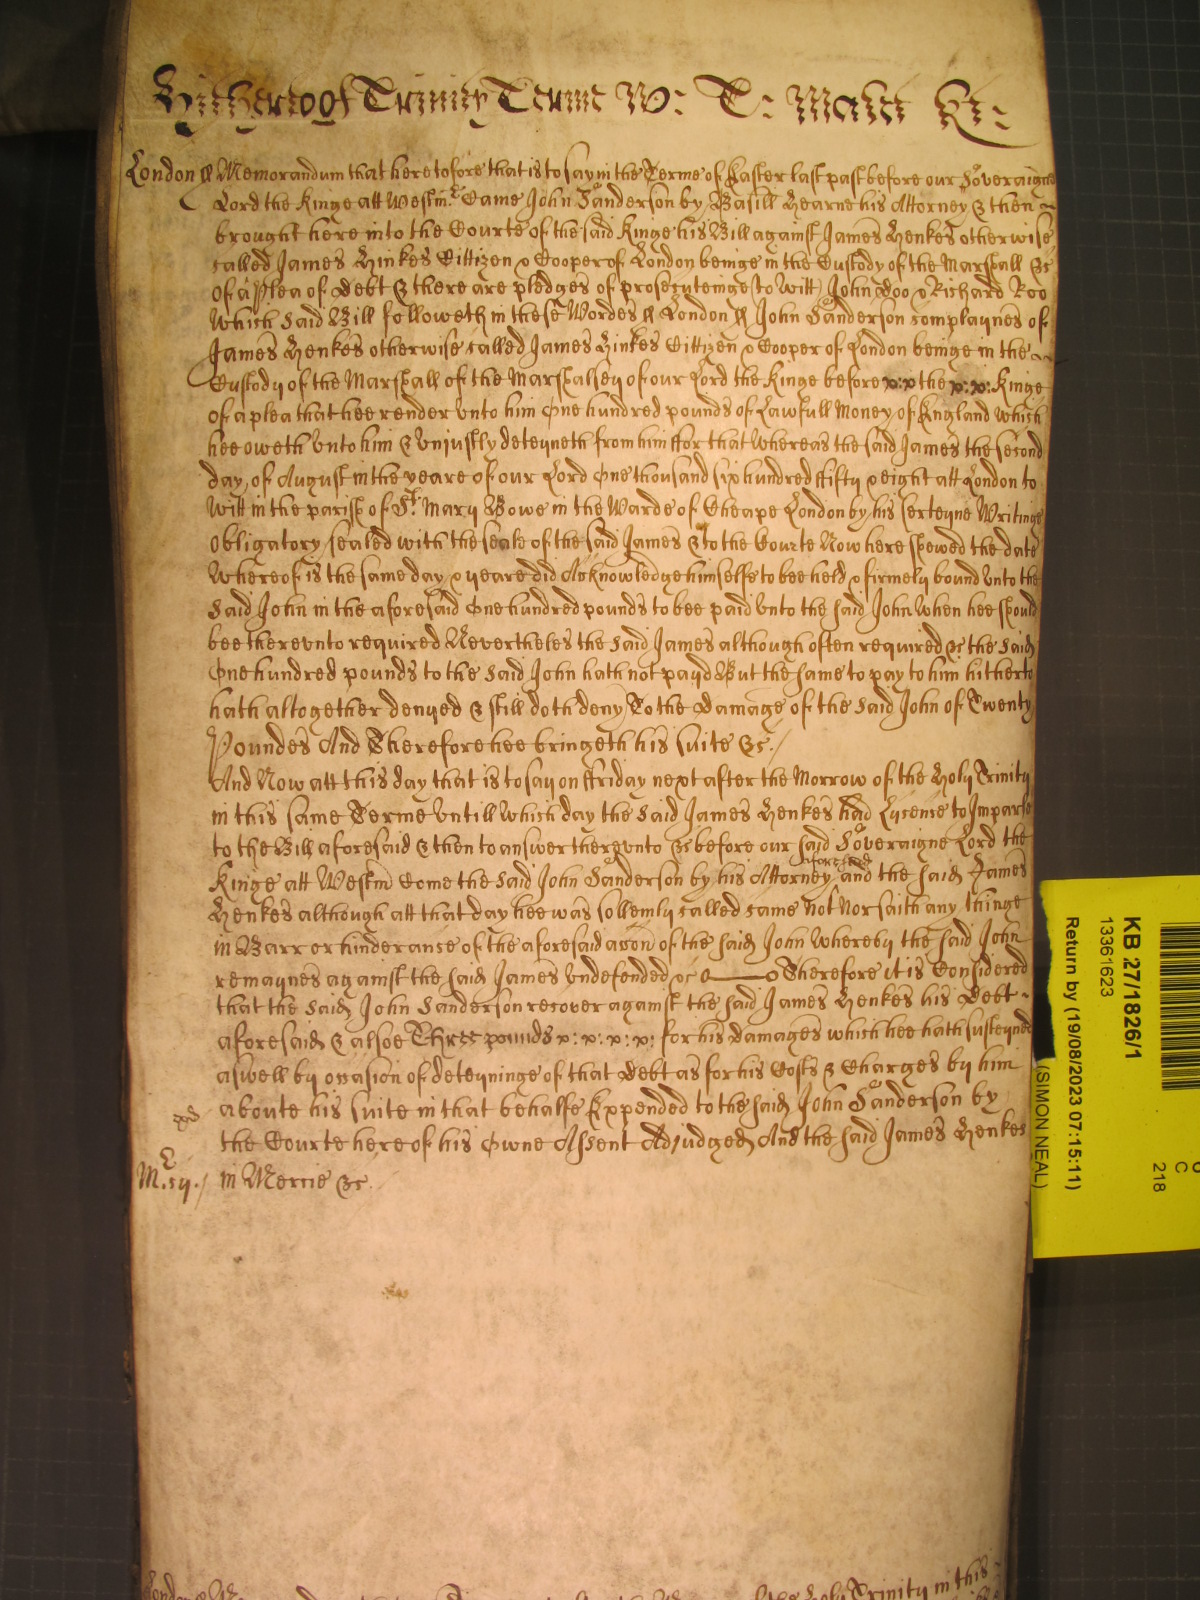 Hitherto of Trinity Terme W: T: Malet Kt:
London ss Memorandum that heretofore that is to say in the Terme of Easter last past before our Soveraigne
Lord the Kinge att Westmr Came John Sanderson by Basill Hearne his Attorney & then
brought here into the Courte of the said Kinge his Bill against James Henkes otherwise
called James Hinkes Cittizen & Cooper of London beinge in the Custody of the Marshall &c
of a plea of Debt & there are pledges of prosecuteinge (to witt) John Doo & Richard Roo
Which said Bill followeth in these Wordes ss London ss John Sanderson complaynes of
James Henkes otherwise called James Hinkes Cittizen & Cooper of London beinge in the
Custody of the Marshall of the Marshalsey of our Lord the Kinge before x:x the x:x: Kinge
of a plea that hee render unto him One hundred pounds of Lawfull Money of England which
hee oweth unto him & unjustly deteyneth from him ffor that Whereas the said James the second
day of August in the yeare of our Lord One thousand six hundred ffifty & eight att London to
Witt in the parish of St. Mary Bowe in the Warde of Cheape London by his certeyne Writinge
obligatory sealed with the seale of the said James & to the Courte Now here shewed the date
Whereof is the same day & yeare did Acknowledge himselfe to bee held & firmely bound unto the
said John in the aforesaid One hundred pounds to bee paid unto the said John When hee should
bee thereunto required Nevertheles the said James although often required &c the said
One hundred pounds to the said John hath not payd But the same to pay to him hitherto
hath altogether denyed & still doth deny To the Damage of the said John of Twenty
Poundes And Therefore hee bringeth his suite &c./
And Now att this day that is to say on ffriday next after the Morrow of the Holy Trinity
in this same Terme untill Which day the said James Henkes had Lycense to Imparle
to the Bill aforesaid & then to answer thereunto &c before our said Soveraigne Lord the
Kinge att Westm Come the said John Sanderson by his Attorney aforesaid and the said James
Henkes although att that day hee was sollemly called came not Nor saith any thinge
in Barr or hinderance of the aforesaid accon of the said John Whereby the said John
remaynes against the said James undefended &c Therefore it is Considered
that the said John Sanderson recover against the said James Henkes his Debt
aforesaid & alsoe Three pounds x: x: x: x: for his Damages which hee hath susteyned
aswell by occasion of deteyninge of that Debt as for his Costs & Charges by him
aboute his suite in that behalfe Expended to the said John Sanderson by
the Courte here of his Owne Assent Adjudged And the said James Henkes
in Mercie &c
KB 27/1826/1
13361623
Return by (19/08/2023 07:15:11)
(SIMON NEAL)
C
218